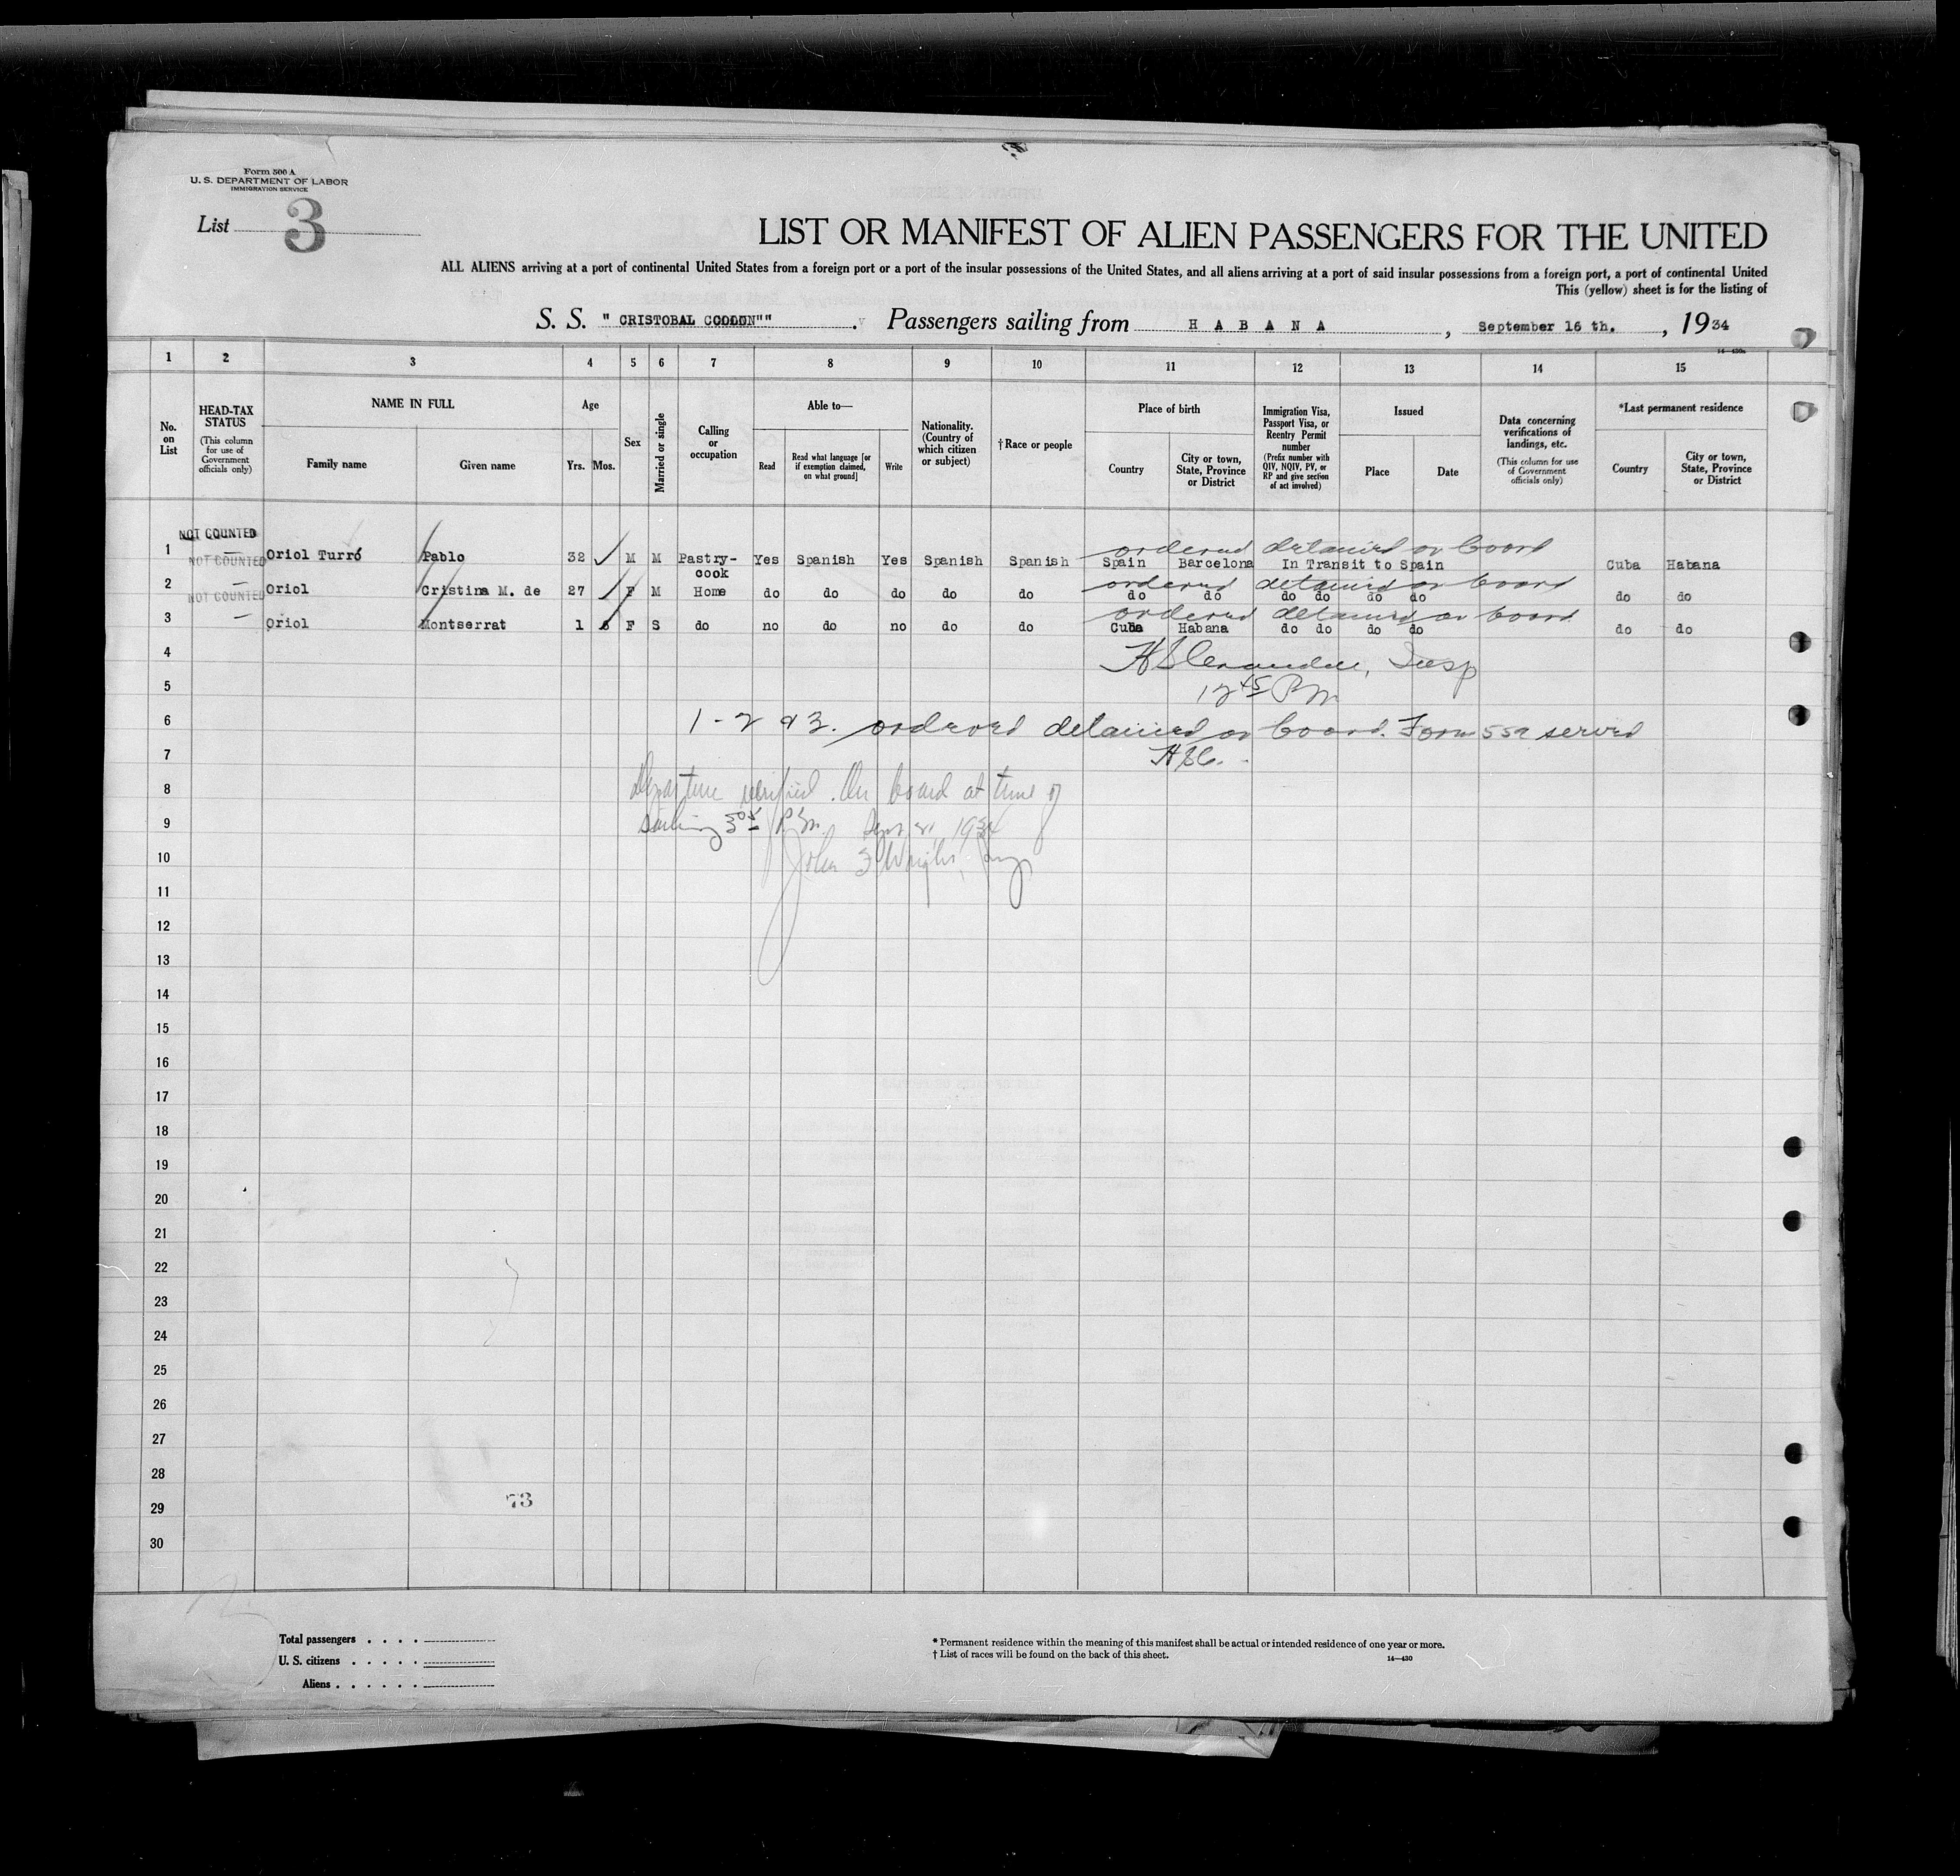 Form 500 A
U. S. DEPARTMENT OF LABOR
IMMIGRATION SERVICE
List 3
LIST OR MANIFEST OF ALIEN PASSENGERS FOR THE UNITED
ALL ALIENS arriving at a port of continental United States from a foreign port or a port of the insular possessions of the United States, and all aliens arriving at a port of said insular possessions from a foreign port, a port of continental United
This (yellow) sheet is for the listing of
S. S. " CRISTOBAL COLON"" . Passengers sailing from H A B A N A , September 16 th. , 1934
14—430a
1 2 3 4 5 6 7 8 9 10 11 12 13 14 15
No. on List
HEAD-TAX STATUS
(This column for use of Government officials only)
NAME IN FULL
Family name Given name
Age
Yrs. Mos.
Sex
Married or single
Calling or occupation
Able to—
Read
Read what language [or if exemption claimed, on what ground]
Write
Nationality. (Country of which citizen or subject)
†Race or people
Place of birth
Country
City or town, State, Province or District
Immigration Visa, Passport Visa, or Reentry Permit number
(Prefix number with QIV, NQIV, PV, or RP and give section of act involved)
Issued
Place Date
Data concerning verifications of landings, etc.
(This column for use of Government officials only)
*Last permanent residence
Country
City or town, State, Province or District
NOT COUNTED
ordered detained on board
1 NOT COUNTED Oriol Turró Pablo 32 M M Pastry-cook Yes Spanish Yes Spanish Spanish Spain Barcelona In Transit to Spain Cuba Habana
ordered detained on board
2 NOT COUNTED Oriol Cristina M. de 27 F M Home do do do do do do do do do do do do do
ordered detained on board
3 Oriol Montserrat 1 F S do no do no do do Cuba Habana do do do do do do
4 Insp
5 12 45 PM
6 1-2 & 3. ordered detained on board. Form served
7
8 Departure verified. On board at time of
9 Sailing 3 05 P.M. Sept 21, 1934
10 John Wright, Insp
11
12
13
14
15
16
17
18
19
20
21
22
23
24
25
26
27
28
29 73
30
Total passengers . . . .
U. S. citizens . . . . .
Aliens . . . . . .
* Permanent residence within the meaning of this manifest shall be actual or intended residence of one year or more.
† List of races will be found on the back of this sheet.
14—430